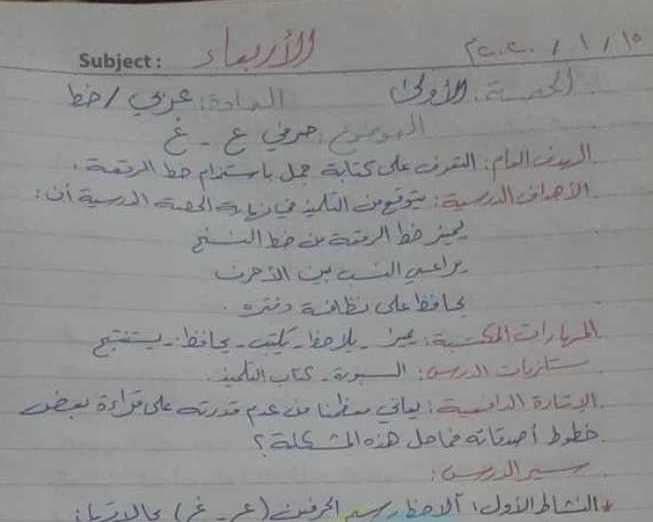 Subject: الأربعاء ١٥ / ١ / ٢٠٢٠م
الحصة: الأولى المادة: عربي / خط
الموضوع: حرفي ع - غ
الهدف العام: التعرف على كتابة جمل باستخدام خط الرقعة.
الأهداف الدرسية: يتوقع من التلميذ في نهاية الحصة الدرسية أن:
يميز خط الرقعة من خط النسخ
يراعي النسب بين الأحرف
يحافظ على نظافة دفتره.
المهارات المكتسبة: يميز - يلاحظ - يكتب - يحافظ - يستنتج
مستلزمات الدرس: السبورة - كتاب التلميذ.
الإثارة الدافعية: يعاني معظمنا من عدم قدرته على قراءة بعض
خطوط أصدقائه فما حل هذه المشكلة؟
سير الدرس:
* النشاط الأول: ألاحظ رسم الحرفين (ع - غ)